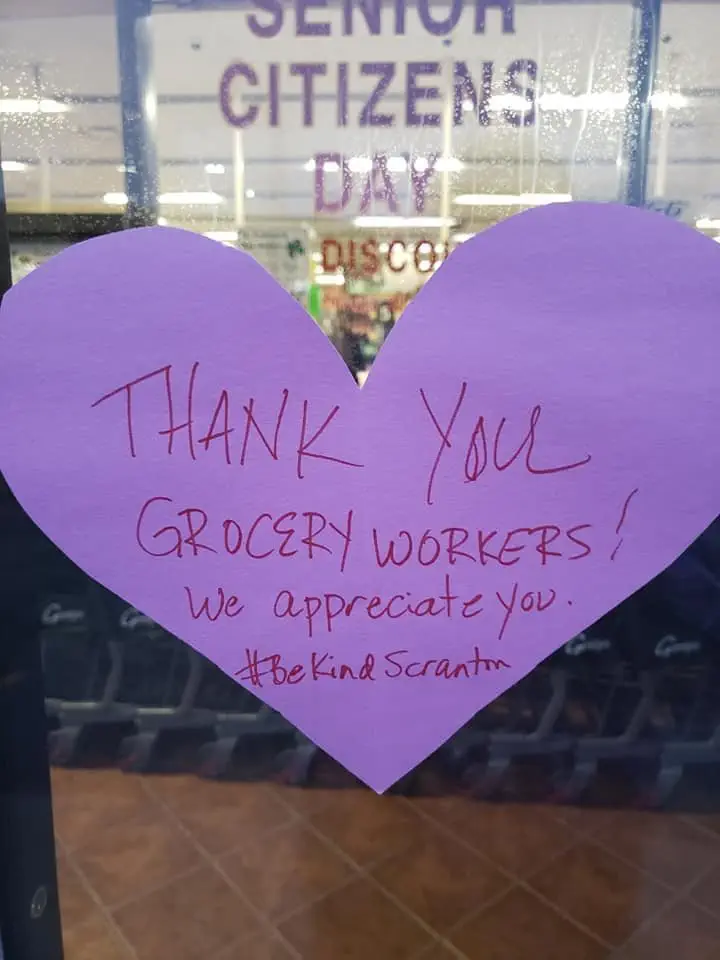 SENIOR
CITIZENS
DAY
THANK YOU
GROCERY WORKERS!
We appreciate you.
#BeKindScranton